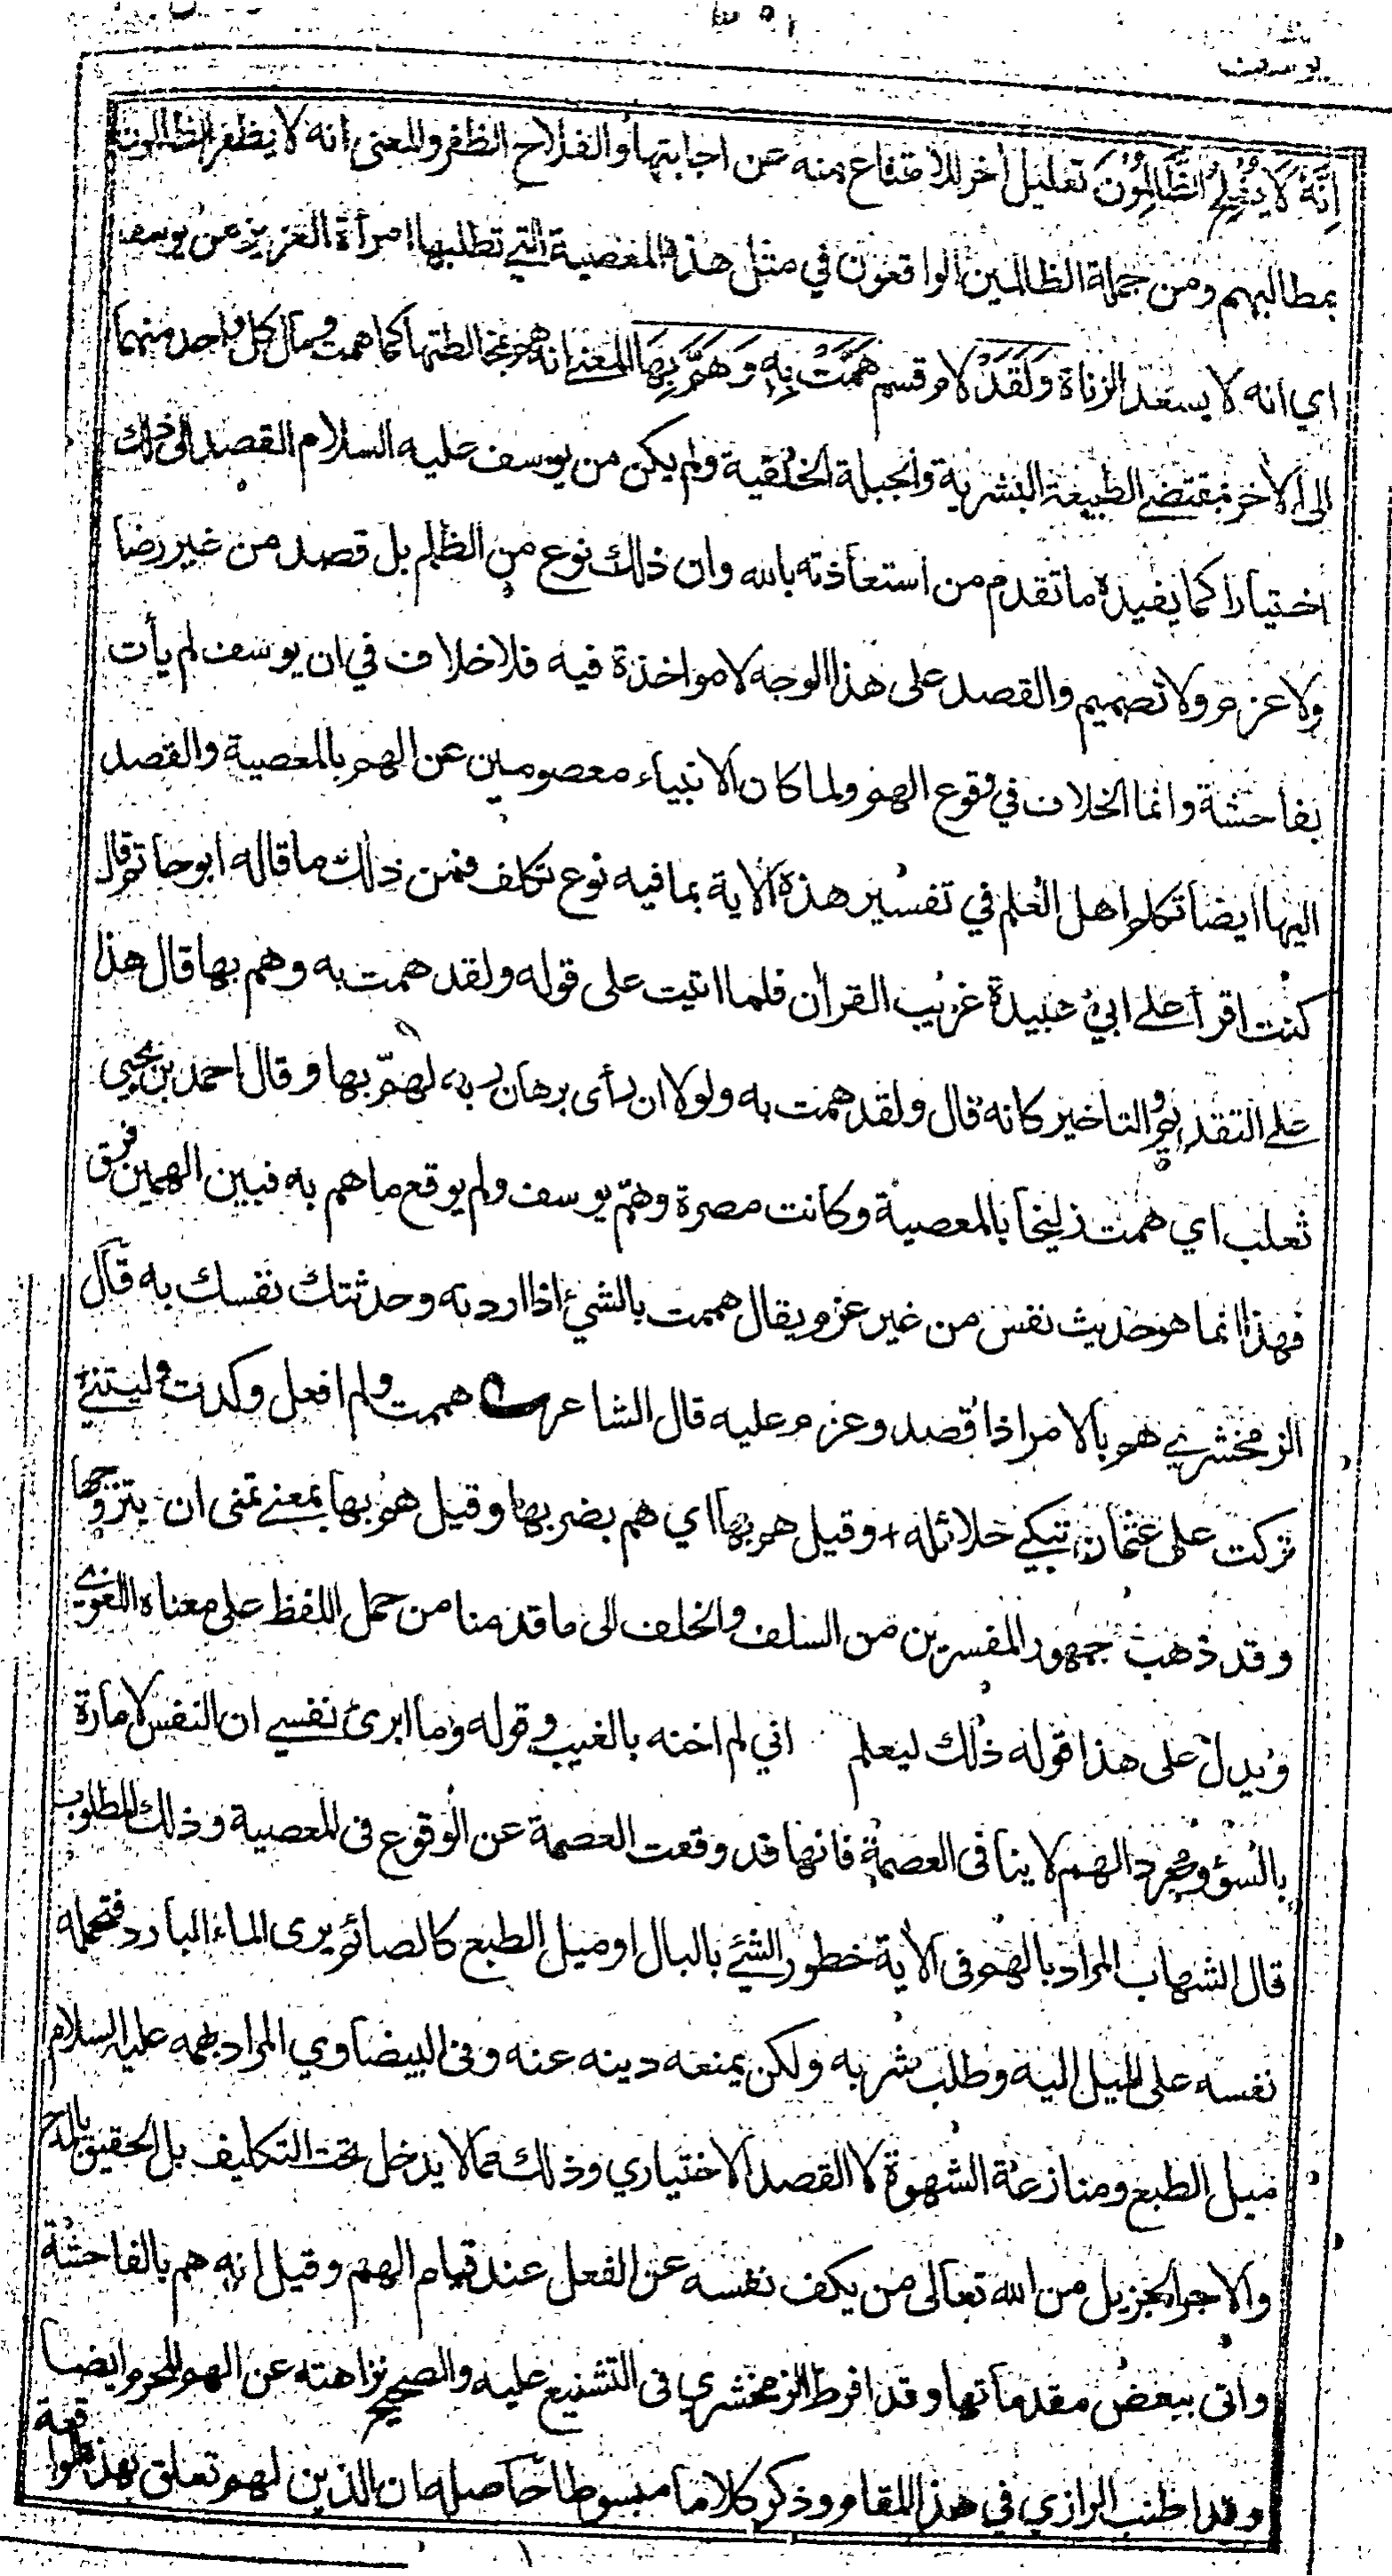 إِنَّهُ لَا يُفْلِحُ الظَّالِمُونَ تعليل أخر للامتناع منه عن اجابتها والفلاح الظفر والمعنى انه لا يظفر الظالمون
بمطالبهم ومن جملة الظالمين الواقعون في مثل هذه المعصية التي تطلبها امرأة العزيز عن يوسف
اي انه لا يسعد الزناة وَلَقَدْ لام قسم هَمَّتْ بِهِ وَهَمَّ بِهَا المعنى انه هم بمخالطتها كما همت ومال كل واحد منهما
الى الأخر بمقتضى الطبيعة البشرية والجبلة الخلقية ولم يكن من يوسف عليه السلام القصد الى ذلك
اختيارا كما يفيده ما تقدم من استعاذته بالله وان ذلك نوع من الظلم بل قصد من غير رضا
ولا عزم ولا تصميم والقصد على هذا الوجه لا مواخذة فيه فلا خلاف في ان يوسف لم يأت
بفاحشة وانما الخلاف في وقوع الهم ولما كان الانبياء معصومين عن الهم بالمعصية والقصد
اليها ايضا تكلم اهل العلم في تفسير هذه الاية بما فيه نوع تكلف فمن ذلك ما قاله ابو حاتم قال
كنت اقرأ على ابي عبيدة غريب القرأن فلما اتيت على قوله ولقد همت به وهم بها قال هذا
على التقديم والتاخير كانه قال ولقد همت به ولولا ان رأى برهان ربه لهمّ بها وقال احمد بن يحيى
ثعلب اي همت زليخا بالمعصية وكانت مصرة وهمّ يوسف ولم يوقع ما هم به فبين الهمين فرق
فهذا انما هو حديث نفس من غير عزم ويقال هممت بالشيء اذا اردته وحدثتك نفسك به قال
الزمخشري هم بالامر اذا قصد وعزم عليه قال الشاعر هممت ولم افعل وكدت وليتني +
تركت على عثمان تبكي حلائله + وقيل هم بها اي هم بضربها وقيل هم بها بمعنى تمنى ان يتزوجها
وقد ذهب جمهور المفسرين من السلف والخلف الى ما قدمنا من حمل اللفظ على معناه اللغوي
ويدل على هذا قوله ذلك ليعلم اني لم اخنه بالغيب وقوله وما ابرئ نفسي ان النفس لامارة
بالسؤ ومجرد الهم لا ينافى العصمة فانها قد وقعت العصمة عن الوقوع فى المعصية وذلك المطلوب
قال الشهاب المراد بالهم فى الاية خطور الشئ بالبال او ميل الطبع كالصائم يرى الماء البارد فتحمله
نفسه على الميل اليه وطلب شربه ولكن يمنعه دينه عنه وفى البيضاوي المراد بهمه عليه السلام
ميل الطبع ومنازعة الشهوة لا القصد الاختياري وذلك مما لا يدخل تحت التكليف بل الحقيق بالمدح
والاجر الجزيل من الله تعالى من يكف نفسه عن الفعل عند قيام الهم وقيل انه هم بالفاحشة
واتى ببعض مقدماتها وقد افرط الزمخشري فى التشنيع عليه والصحيح نزاهته عن الهم المحرم ايضا
وقد اطنب الرازي في هذا المقام وذكر كلاما مبسوطا حاصله ان الذين لهم تعلق بهذه الواقعة